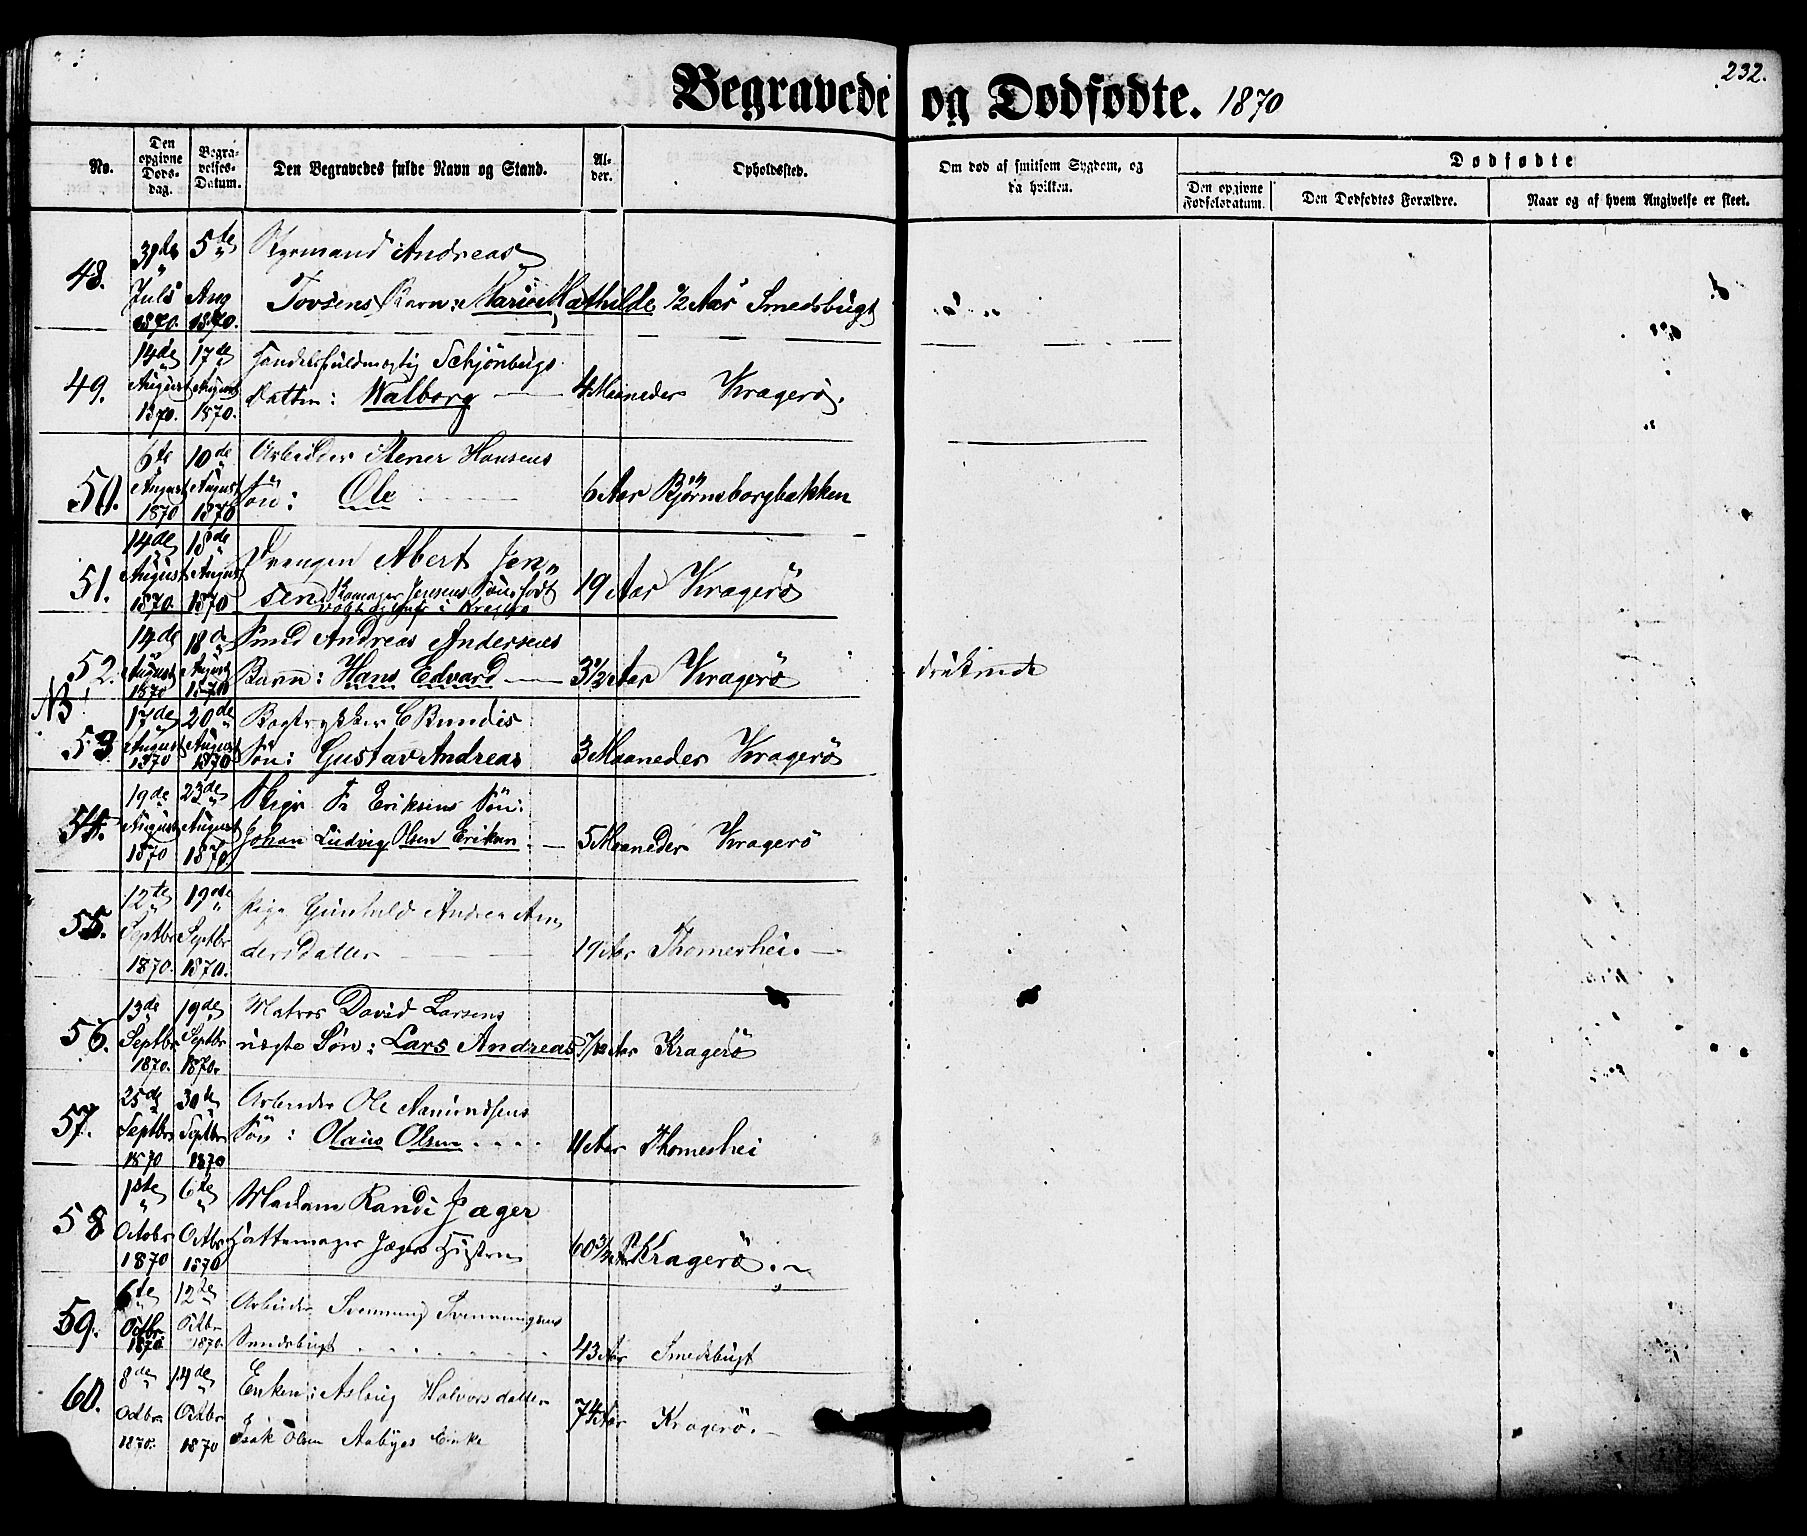 232.
Begravede og Dødfødte. 1870
No.
Den opgivne Døds-dag.
Begra-velses-Datum.
Den Begravedes fulde Navn og Stand.
Al-der.
Opholdssted.
Om død af smitsom Sygdom, og da hvilken.
Dødfødte
Den opgivne Fødselsdatum.
Den Dødfødtes Forældre.
Naar og af hvem Angivelse er skeet.
48. 5te Styrmand Andreas
Juli 1870. Aug 1870. Barn: Marie Mathilde 1/2 Aar Smedsbugt
49. 14de August 1870. 17de August 1870. Handelsfuldmægtig Schjönbergs
Datter: Walborg 4 Maaneder Kragerö.
50. 6te August 1870 10de August 1870 Arbeider Stener Hansens
Sön: Ole 6 Aar Bjørnsborgbakken
51. 14de August 1870. 18de August 1870 Drengen Albert Jen-
sen Jensens Sön, födt 19 Aar Kragerö
i Kragerö
52. 14de August 1870 18de August 1870 Smed Andreas Andersens
Barn: Hans Edvard 3 1/2 Aar Kragerö
NB
53 17de August 1870 20de August 1870 Bogtrykker C Bundis
Sön: Gustav Andreas 3 Maaneder Kragerö
54. 19de August 1870 23de August 1870. Eriksens Sön:
Johan Ludvig Olsen Eriksen 5 Maaneder Kragerö
55. 12te Septbr 1870. 19de Septbr 1870. Pige Gunhild Andrea An-
dersDatter 19 Aar Thomeshei.
56. 13de Septbr 1870. 19de Septbr 1870. Matros David Larsens
uægte Søn: Lars Andreas 7/12 Aar Kragerö
57. 25de Septbr 1870 30te Septbr 1870 Arbeider Ole Aamundsens
Sön: Olaus Olsen 11 Aar Thomeshei
58 1ste Octobr 1870 6te Octbr 1870 Madam Randi Jæger
Hattemager Jægers Hustru 60 3/4 Aar Kragerö.
59. 6te Octbr 1870 12te Octbr 1870. Arbeider Svennung Svennungsens
43 Aar Smedsbugt
60. 8de Octbr 1870. 14de Octbr 1870 Enken: Aslaug Halvorsdatter
Isak Olsen Aabyes Enke 74 Aar Kragerö.